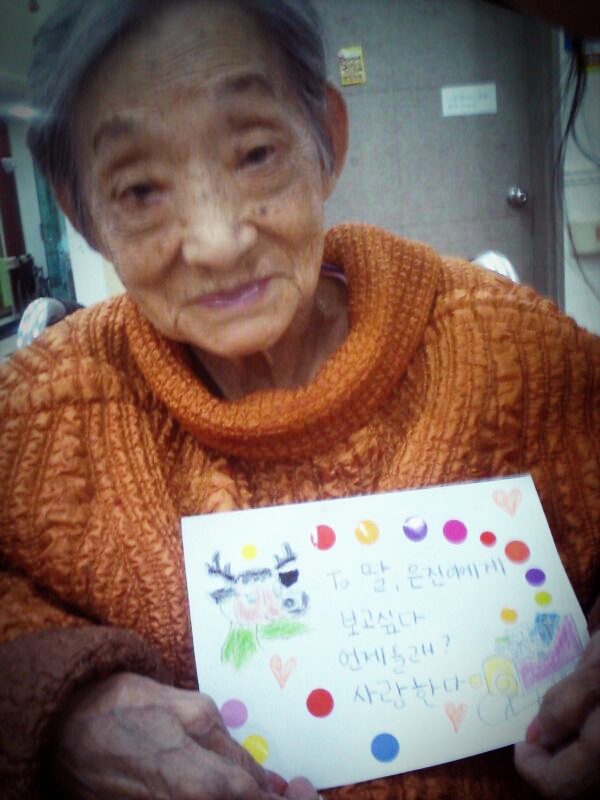 To 딸, 은진이에게
보고싶다
언제올래?
사랑한다